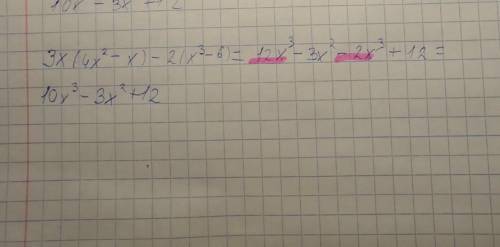 10x - 3x + 12
3x(4x² - x) - 2(x³ - 6) = 12x³ - 3x² - 2x³ + 12 =
10x³ - 3x² + 12